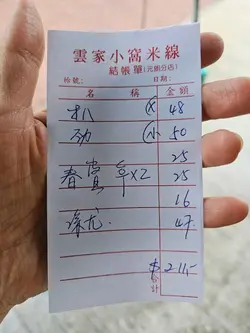 雲家小窩米線
結帳單(元朗分店)
枱號: 日期:
名 稱 金額
扒 48
劲 小 50
25
春 卒x2 25
16
47
合計 $211-